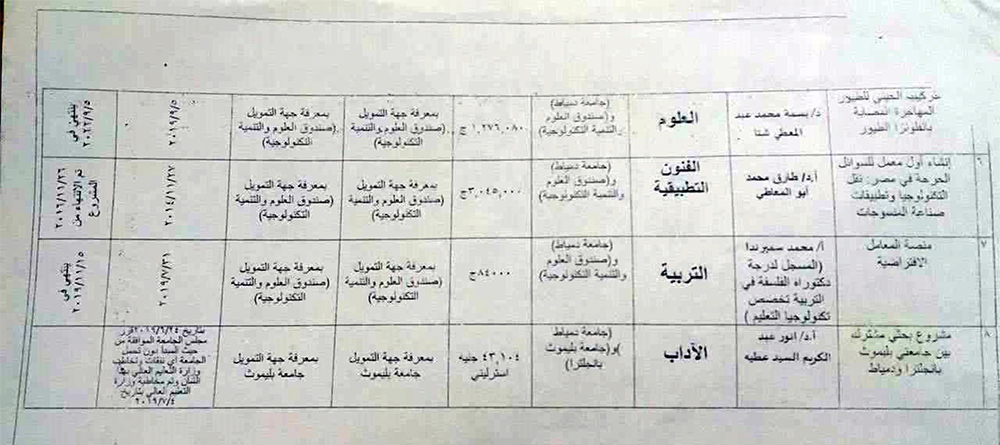 تركيب الجيني للطيور
المهاجرة المصابة
بانفلونزا الطيور
د/ بسمة محمد عبد
المعطي شتا
العلوم
(جامعة دمياط
و(صندوق العلوم
والتنمية التكنولوجية)
١,٢٧٦,٠٨٠ ج
بمعرفة جهة التمويل
(صندوق العلوم والتنمية
التكنولوجية)
بمعرفة جهة التمويل
(صندوق العلوم والتنمية
التكنولوجية)
٢٠١٩/٩/٥
ينتهي في
٢٠٢٢/٩/٥
٦
إنشاء أول معمل للسوائل
الحرجة في مصر: نقل
التكنولوجيا وتطبيقات
صناعة المنسوجات
أ.د/ طارق محمد
أبو المعاطي
الفنون
التطبيقية
(جامعة دمياط)
و(صندوق العلوم
والتنمية التكنولوجية)
٣,٠٤٥,٠٠٠ج
بمعرفة جهة التمويل
(صندوق العلوم والتنمية
التكنولوجية)
بمعرفة جهة التمويل
(صندوق العلوم والتنمية
التكنولوجية)
٢٠١٤/١١/٢٧
تم الانتهاء من
المشروع
٢٠١٦/١١/٢٦
٧
منصة المعامل
الافتراضية
أ/ محمد سمير ندا
(المسجل لدرجة
دكتوراه الفلسفة في
التربية تخصص
تكنولوجيا التعليم )
التربية
(جامعة دمياط)
و(صندوق العلوم
والتنمية التكنولوجية)
٨٤٠٠٠ج
بمعرفة جهة التمويل
(صندوق العلوم والتنمية
التكنولوجية)
بمعرفة جهة التمويل
(صندوق العلوم والتنمية
التكنولوجية)
٢٠١٩/٧/٢١
ينتهي في
٢٠١٩/١١/١٥
٨
مشروع بحثي مشترك
بين جامعتي بليموث
بانجلترا ودمياط
أ.د/ انور عبد
الكريم السيد عطيه
الآداب
(جامعة دمياط
)و(جامعة بليموث
بانجلترا)
٤٣,١٠٤ جنيه
استرليني
بمعرفة جهة التمويل
جامعة بليموث
بمعرفة جهة التمويل
جامعة بليموث
بتاريخ ٢٠١٩/٦/٢٤ قرر
مجلس الجامعة الموافقة من
حيث المبدأ دون تحمل
الجامعة أي نفقات وتخاطب
وزارة التعليم العالي بهذا
الشأن وتم مخاطبة وزارة
التعليم العالي بتاريخ
٢٠١٩/٧/٤